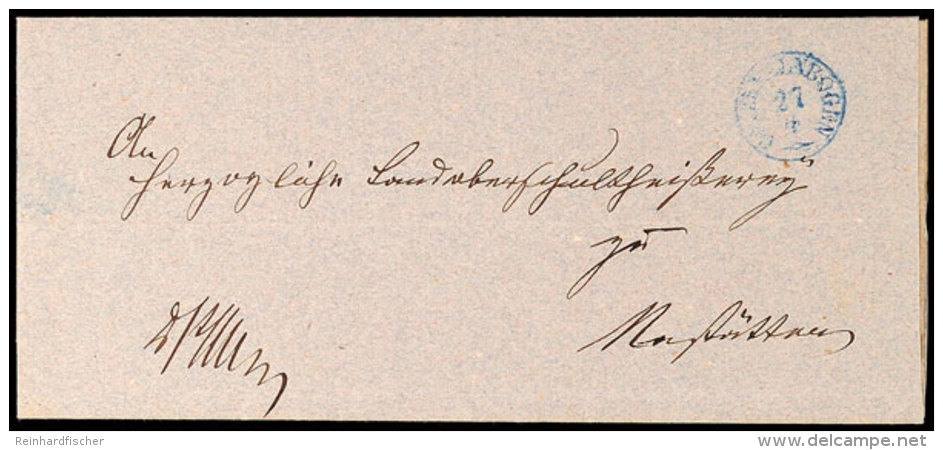 27
4
An
Herzogliche Landoberschultheißerey
zu
Nastätten
Reinhardfischer
delcampe.net